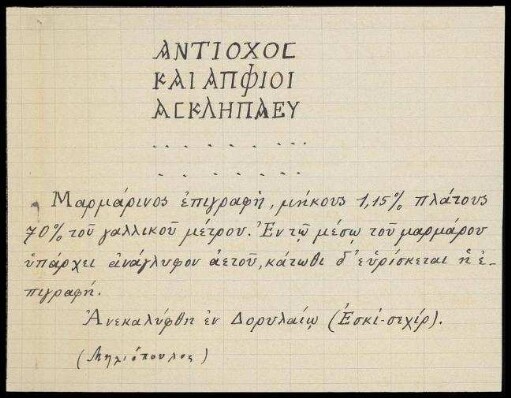 ΑΝΤΙΟΧΟΣ
ΚΑΙ ΑΠΦΙΟΙ
ΑΣΚΛΗΠΑΕΥ
.. . . . . ...
. . . . . ..
Μαρμάρινος ἐπίγραφὴ, μήκους 1,15% πλάτους
70% τοῦ γαλλικοῦ μέτρου. Ἐν τῷ μέσῳ τοῦ μαρμάρου
ὑπάρχει ἀνάγλυφον ἀετοῦ, κάτωθι δ' εὑρίσκεται ἡ ἐ-
πιγραφή.
Ἀνεκαλύφθη ἐν Δορυλαίῳ (Ἐσκὶ-σιχίρ).